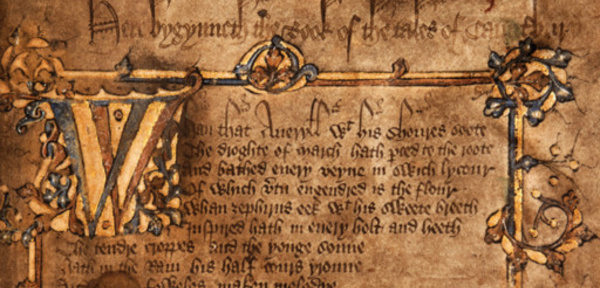 Here bygynneth the Book of the tales of Caunterbury
Whan that Aueryll wt his shoures soote
The droghte of march hath perced to the roote
And bathed euery veyne in swich lycour
Of which vtu engendred is the flour
Whan zephirus eek wt his sweete breeth
Inspired hath in euery holt and heeth
The tendre croppes and the yonge sonne
Hath in the Ram his half cours yronne
foweles maken melodye